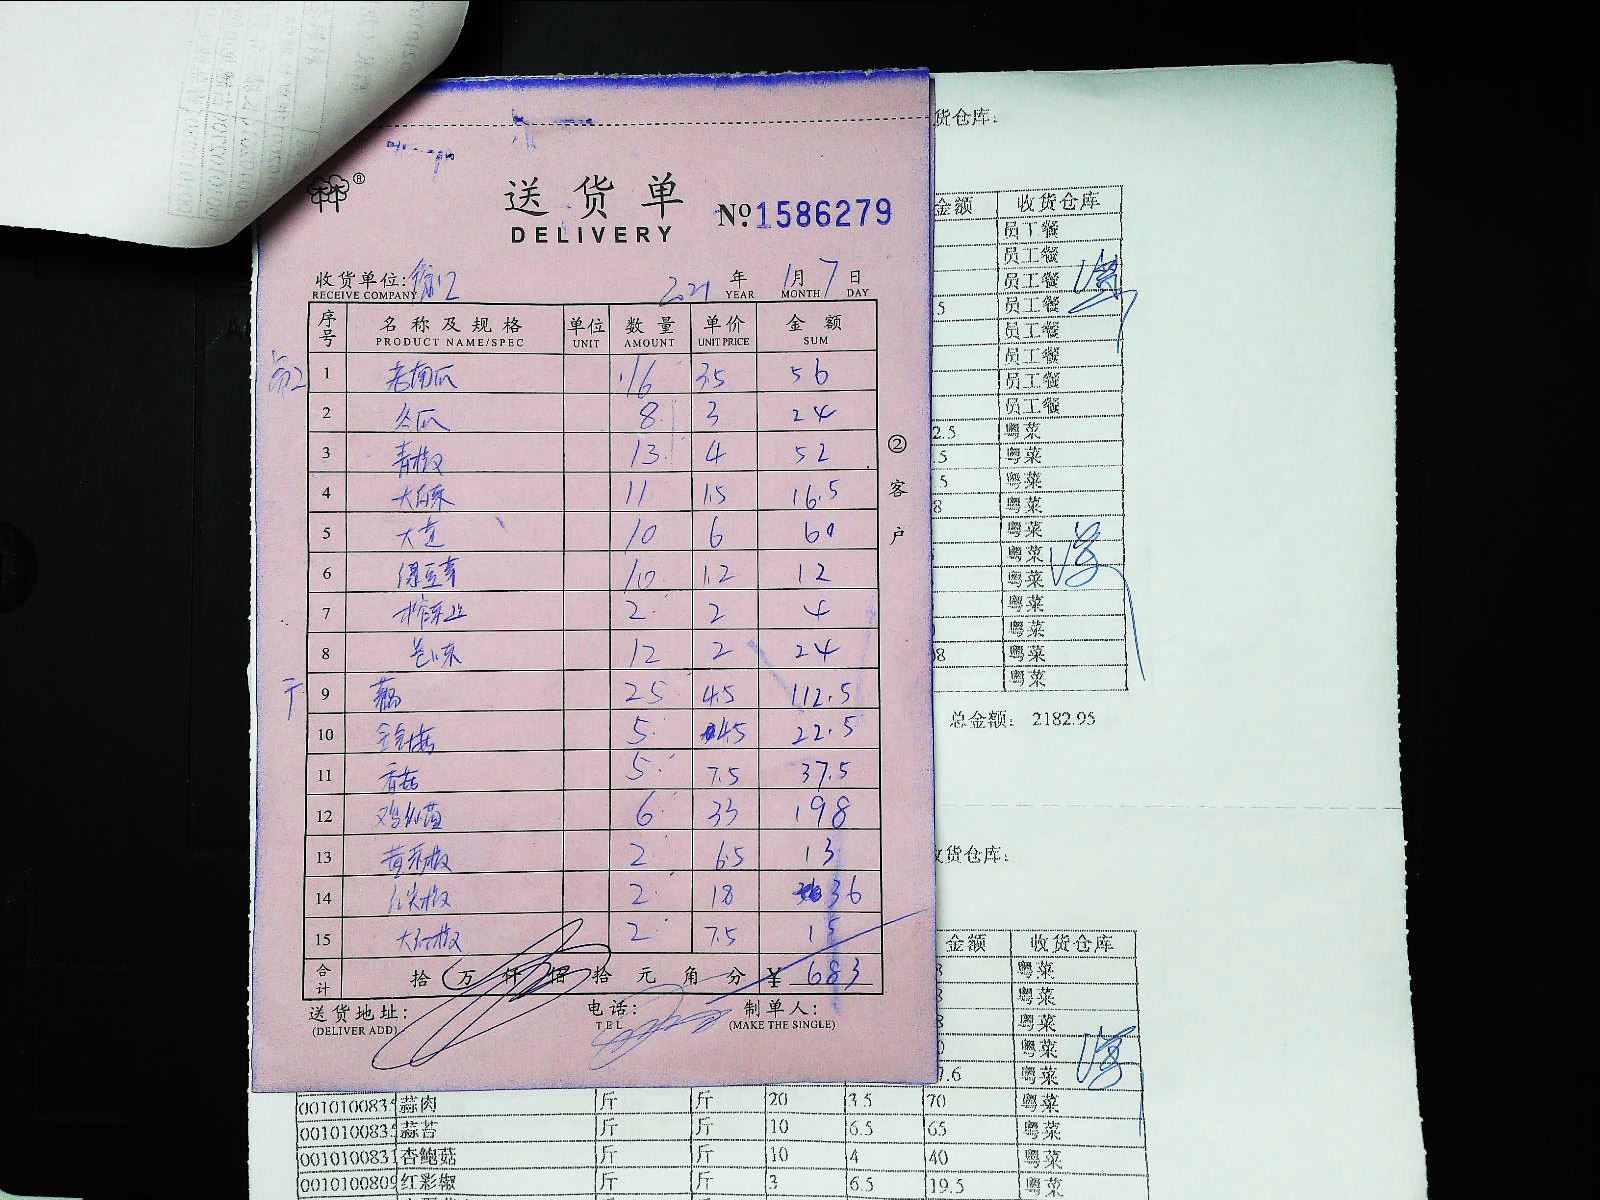 送货单
DELIVERY
No.1586279
收货单位:
RECEIVE COMPANY
2021 年 1月 7 日
YEAR MONTH DAY
序号 名称及规格 单位 数量 单价 金额
PRODUCT NAME/SPEC UNIT AMOUNT UNIT PRICE SUM
1 老南瓜 16 3.5 56
2 冬瓜 8 3 24
3 青椒 13 4 52
4 大白菜 11 1.5 16.5
5 大葱 10 6 60
6 绿豆芽 10 1.2 12
7 榨菜丝 2 2 4
8 包菜 12 2 24
9 藕 25 4.5 112.5
10 金针菇 5 4.5 22.5
11 香菇 5 7.5 37.5
12 鸡枞菌 6 33 198
13 黄彩椒 2 6.5 13
14 尖椒 2 18 36
15 大红椒 2 7.5 15
合计 拾 万 仟 佰 拾 元 角 分 ¥ 683
送货地址:
(DELIVER ADD)
电话:
TEL
制单人:
(MAKE THE SINGLE)
②客户
货仓库:
金额 收货仓库
员工餐
员工餐
员工餐
5 员工餐
员工餐
员工餐
员工餐
员工餐
2.5 粤菜
5 粤菜
5 粤菜
8 粤菜
粤菜
粤菜
粤菜
粤菜
粤菜
08 粤菜
粤菜
总金额: 2182.95
收货仓库:
金额 收货仓库
8 粤菜
8 粤菜
8 粤菜
0 粤菜
7.6 粤菜
001010083 蒜肉 斤 斤 20 3.5 70 粤菜
001010083 蒜苔 斤 斤 10 6.5 65 粤菜
001010083 杏鲍菇 斤 斤 10 4 40 粤菜
001010080 红彩椒 斤 斤 3 6.5 19.5 粤菜